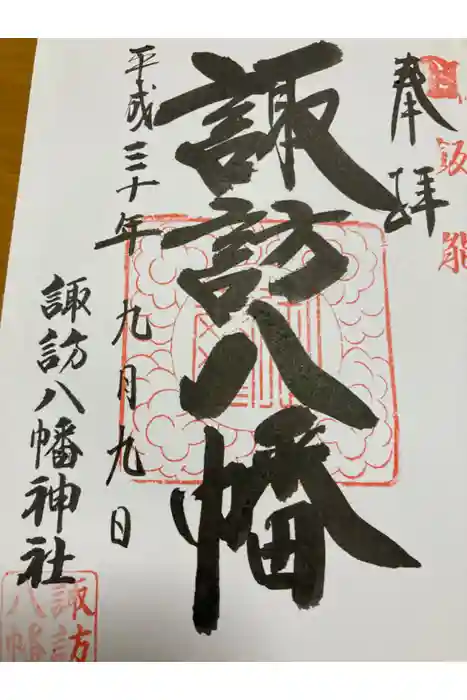 奉拝
飯能
諏訪八幡
平成三十年九月九日
諏訪八幡神社
諏訪
八幡